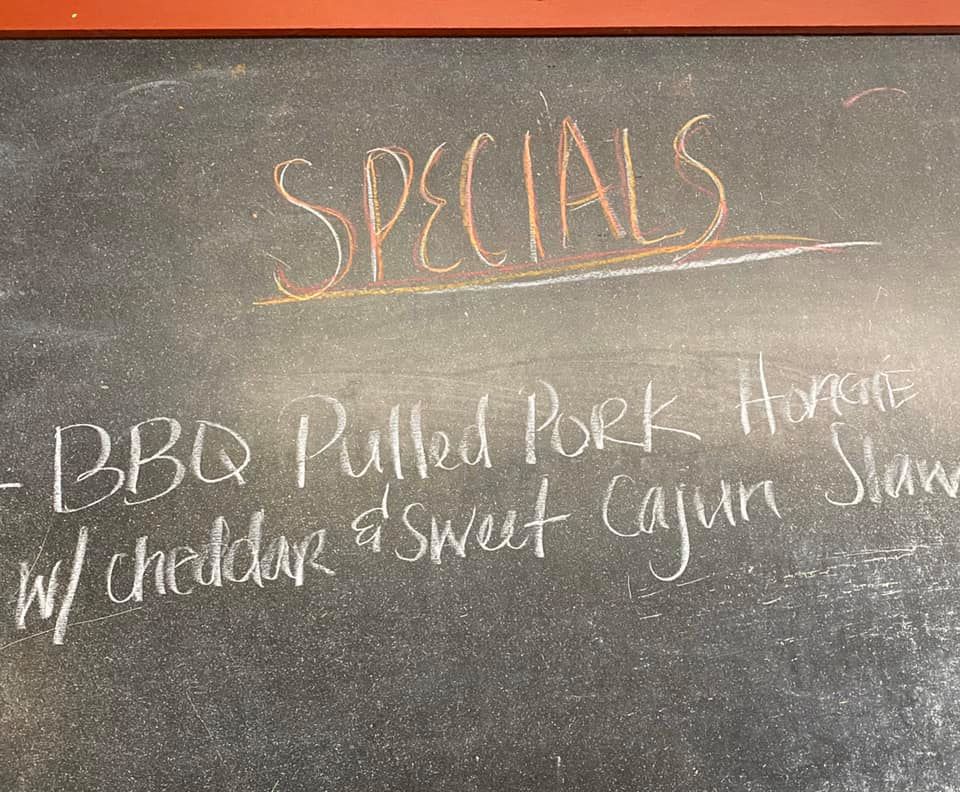 SPECIALS
- BBQ Pulled Pork Hoagie
w/ cheddar & sweet Cajun Slaw